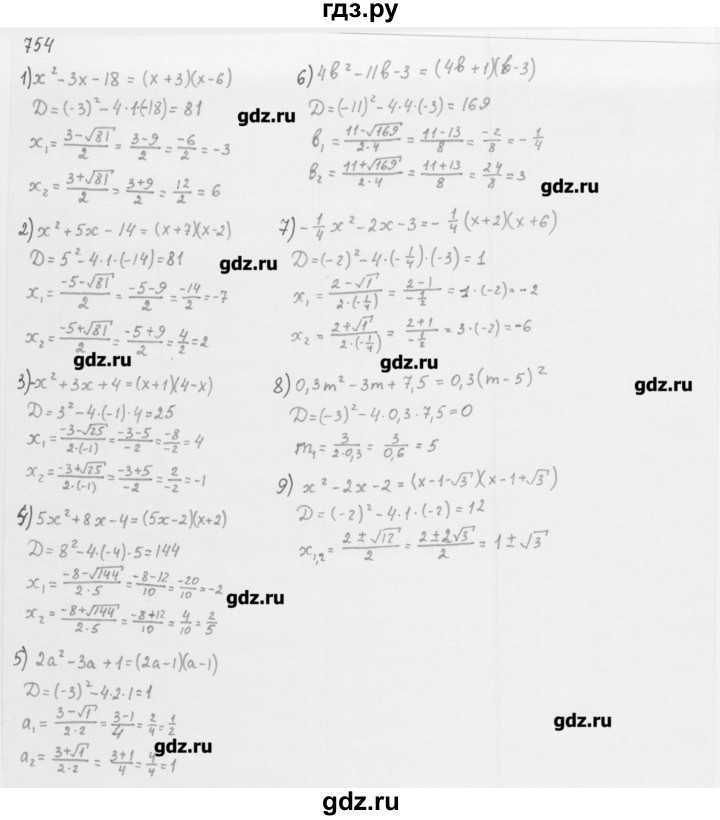 гдз.ру
754
1) x² - 3x - 18 = (x + 3)(x - 6)
D = (-3)² - 4·1·(-18) = 81
x₁ = (3-√81)/2 = (3-9)/2 = (-6)/2 = -3
gdz.ru
x₂ = (3+√81)/2 = (3+9)/2 = 12/2 = 6
2) x² + 5x - 14 = (x+7)(x-2)
D = 5² - 4·1·(-14) = 81
gdz.ru
x₁ = (-5-√81)/2 = (-5-9)/2 = (-14)/2 = -7
x₂ = (-5+√81)/2 = (-5+9)/2 = 4/2 = 2
gdz.ru
3) -x² + 3x + 4 = (x+1)(4-x)
D = 3² - 4·(-1)·4 = 25
x₁ = (-3-√25)/(2·(-1)) = (-3-5)/(-2) = (-8)/(-2) = 4
x₂ = (-3+√25)/(2·(-1)) = (-3+5)/(-2) = 2/(-2) = -1
4) 5x² + 8x - 4 = (5x-2)(x+2)
D = 8² - 4·(-4)·5 = 144
x₁ = (-8-√144)/(2·5) = (-8-12)/10 = (-20)/10 = -2
gdz.ru
x₂ = (-8+√144)/(2·5) = (-8+12)/10 = 4/10 = 2/5
5) 2a² - 3a + 1 = (2a-1)(a-1)
D = (-3)² - 4·2·1 = 1
a₁ = (3-√1)/(2·2) = (3-1)/4 = 2/4 = 1/2
gdz.ru
a₂ = (3+√1)/(2·2) = (3+1)/4 = 4/4 = 1
6) 4b² - 11b - 3 = (4b+1)(b-3)
D = (-11)² - 4·4·(-3) = 169
b₁ = (11-√169)/(2·4) = (11-13)/8 = (-2)/8 = -1/4
b₂ = (11+√169)/(2·4) = (11+13)/8 = 24/8 = 3
gdz.ru
7) -1/4 x² - 2x - 3 = -1/4 (x+2)(x+6)
D = (-2)² - 4·(-1/4)·(-3) = 1
x₁ = (2-√1)/(2·(-1/4)) = (2-1)/(-1/2) = 1·(-2) = -2
x₂ = (2+√1)/(2·(-1/4)) = (2+1)/(-1/2) = 3·(-2) = -6
gdz.ru
8) 0,3m² - 3m + 7,5 = 0,3(m-5)²
gdz.ru
D = (-3)² - 4·0,3·7,5 = 0
m₁ = 3/(2·0,3) = 3/0,6 = 5
9) x² - 2x - 2 = (x-1-√3)(x-1+√3)
D = (-2)² - 4·1·(-2) = 12
x₁,₂ = (2±√12)/2 = (2±2√3)/2 = 1±√3
gdz.ru
gdz.ru